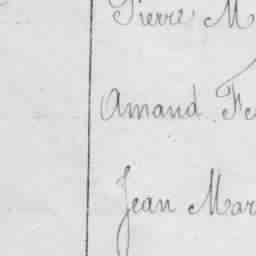 Pierre M
Amand Fe
Jean Mar